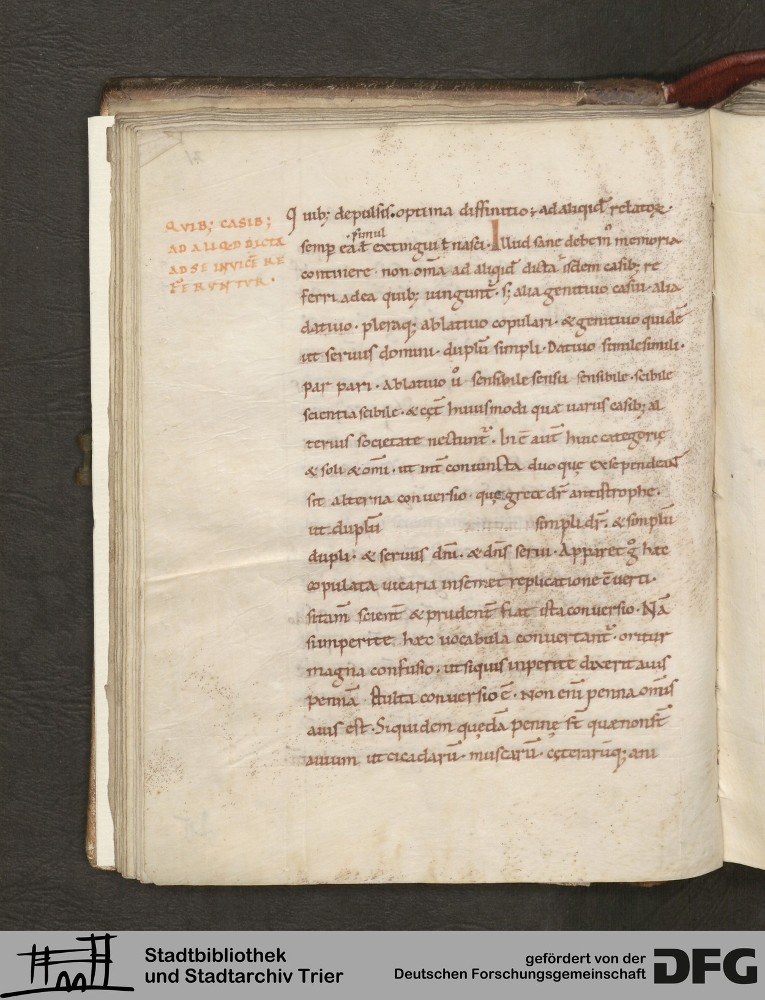 QVIB; CASIB;
AD ALIQD DICTA
AD SE INVICĒ RE
FERVNTVR.
Quib; depulsis. optima diffinitio; ad aliqd relatoꝝ.
simul
semp ea ł extingui ł nasci. Illud sane debem memoria
continere. non oma ad aliqd dicta. isdem casib; re
ferri ad ea quib; iungunt. s; alia genitiuo casui. alia
datiuo. pleraq; ablatiuo copulari. & genitiuo quidē
ut seruus domini. duplū simpli. Datiuo simile simili.
par pari. Ablatiuo u sensibile sensu sensibile. scibile
scientia scibile. & cęt huiusmodi quae uariis casib; al
terius societate nectunt. In ē aut huic categorię
& soli & omi. ut int coniuncta duo quę ex se pendeant
sit alterna conuersio. quę grece dr antistrophe.
ut duplū simpli dr. & simplū
dupli. & seruus dni. & dns serui. Apparet g haec
copulata uicaria in semet replicatione ē uerti.
si tam scient & prudent fiat ista conuersio. Nā
si inperite haec uocabula conuertant. oritur
magna confusio. ut si quis inperite dixerit auis
pennā. stulta conuersio ē. Non eni penna omis
auis est. Siquidem quędā pennę st quae non st
auium ut cicadarū. muscarū. cęterarūq; ani
Stadtbibliothek
und Stadtarchiv Trier
gefördert von der
Deutschen Forschungsgemeinschaft
DFG